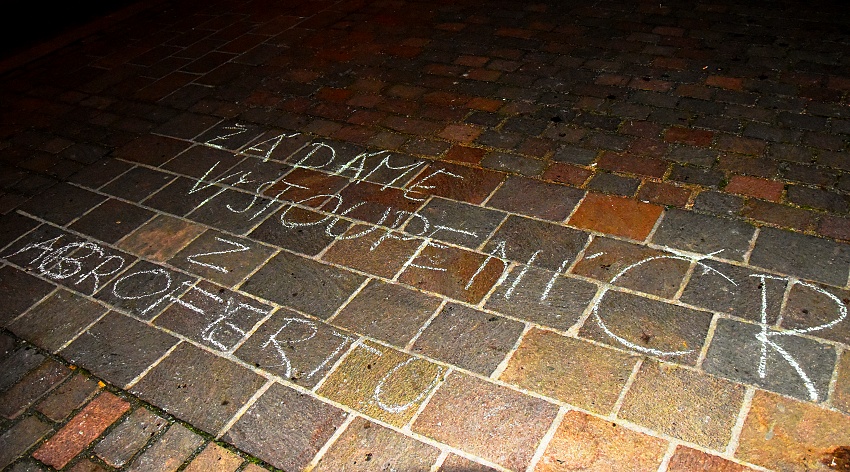 ZÁDAME
VYSTOUPENÍ ČR
Z
AGROFERTO